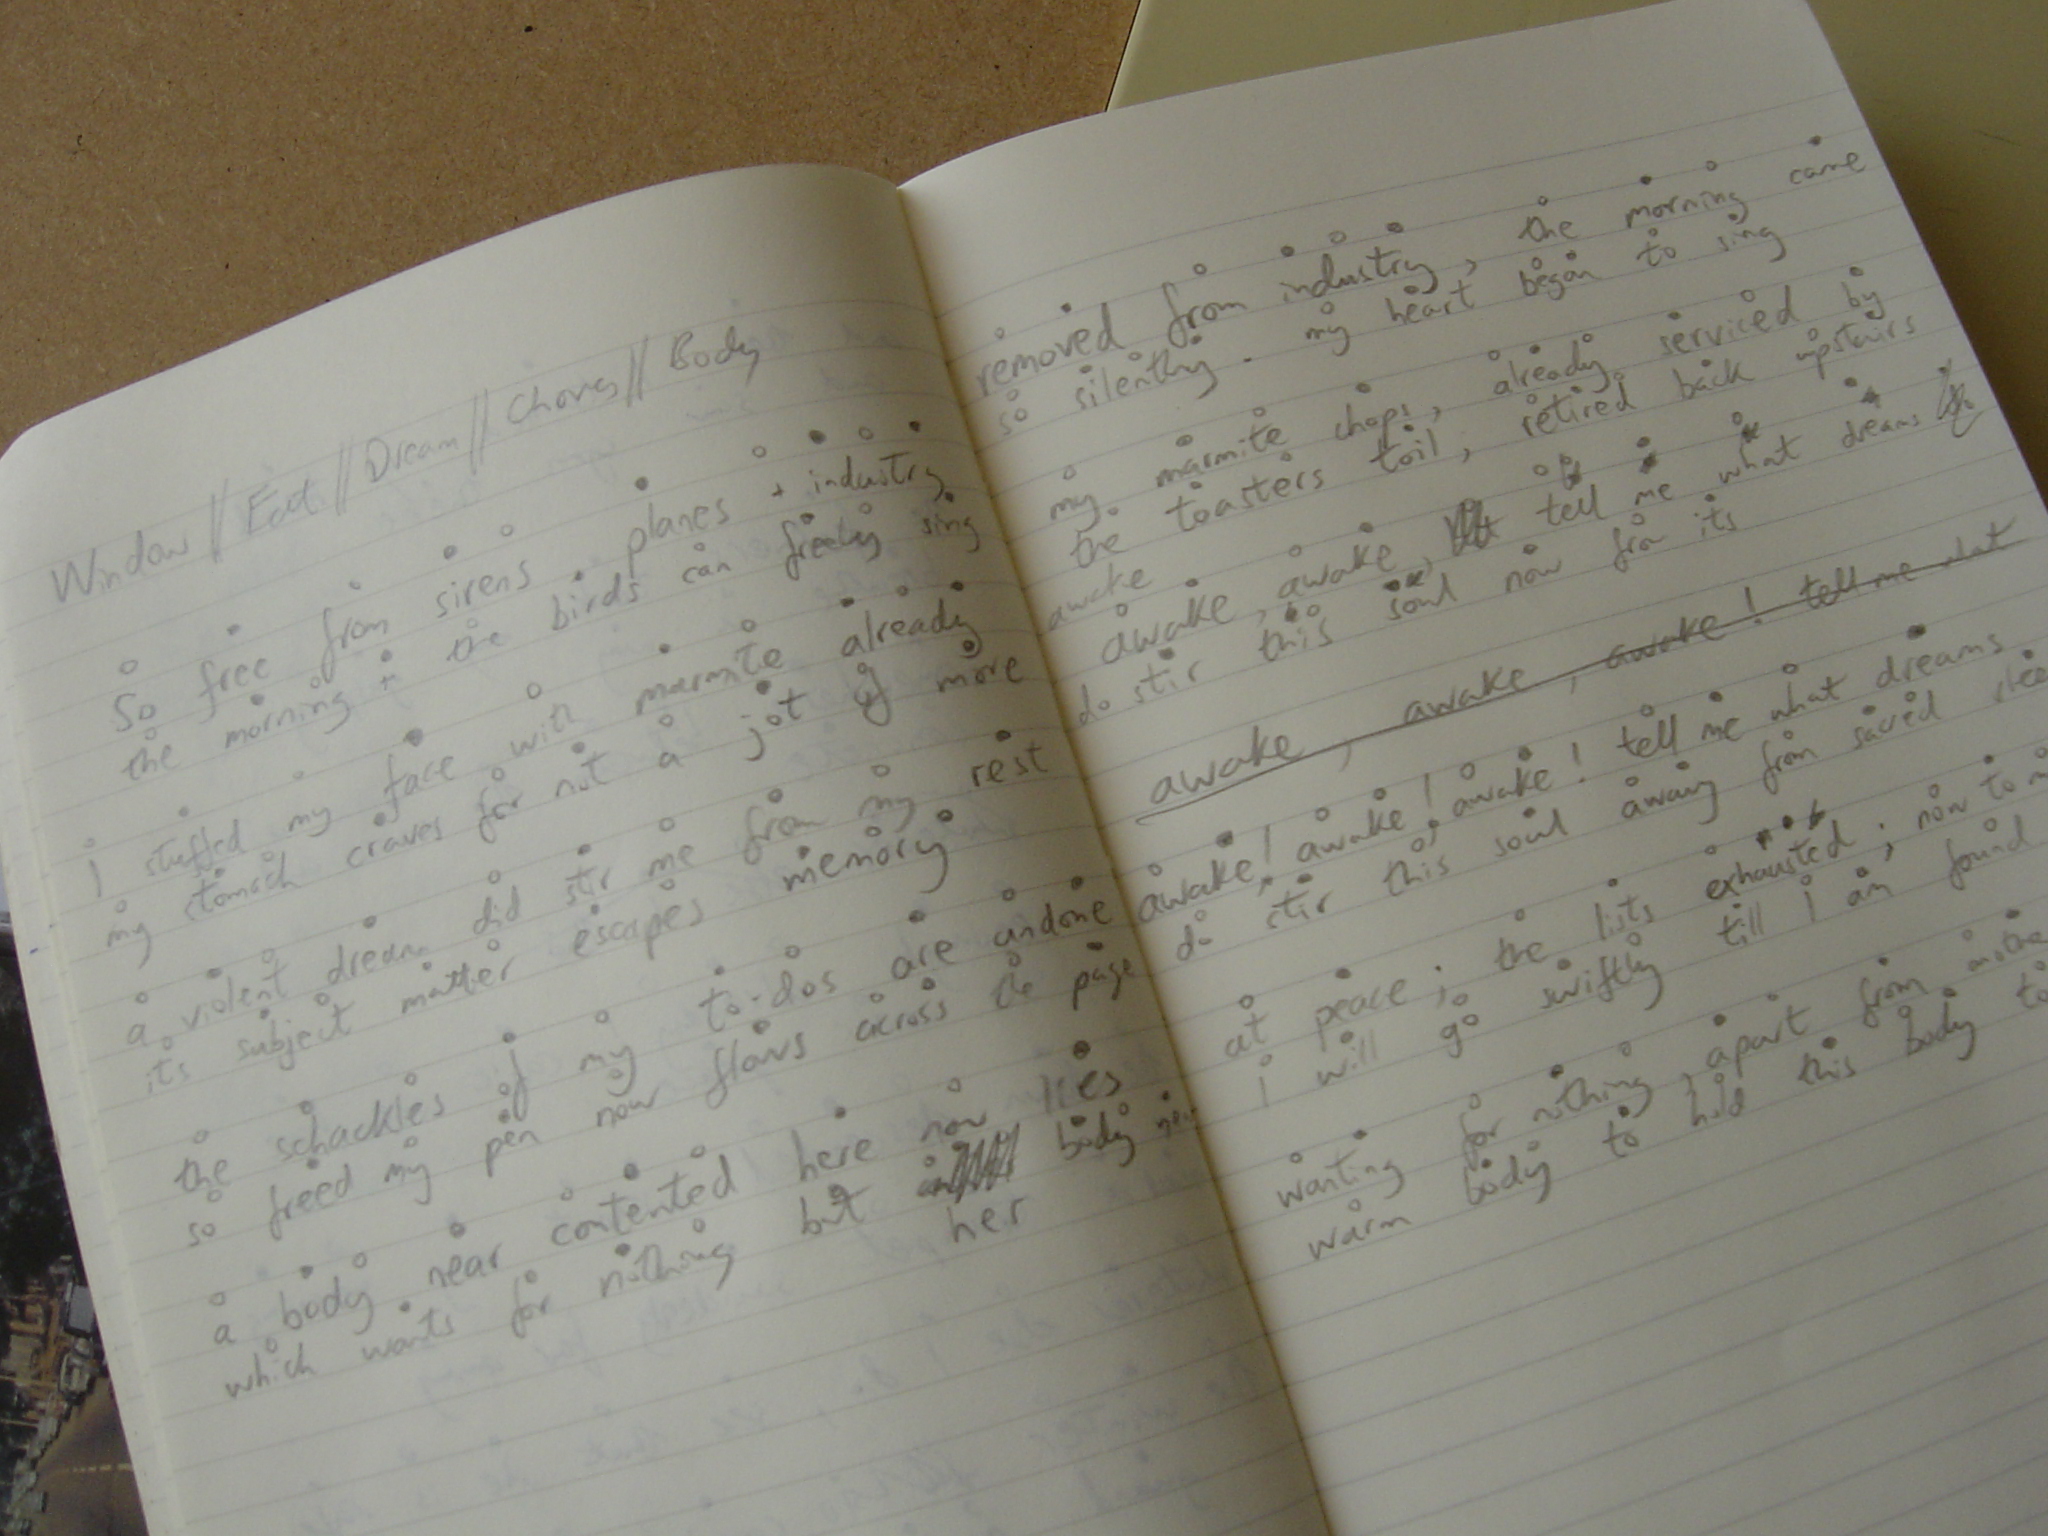 Window // Eat // Dream // Chores // Body
So free from sirens planes + industry
the morning + the birds can freely sing
I stuffed my face with marmite already
my stomach craves for not a jot of more
a violent dream did stir me from my rest
its subject matter escapes memory
the schackles of my to-dos are undone
so freed my pen now flows across the page
a body near contented here now lies
which wants for nothing but body near
her
removed from industry, the morning came
so silently. my heart began to sing
my marmite chops, already serviced by
the toasters toil, retired back upstairs
awake
awake, awake, tell me what dreams
do stir this soul now from its
awake, awake, awake! tell me what
awake! awake! awake! tell me what dreams
do stir this soul away from sacred
at peace; the lists exhausted; now to
I will go swiftly till I am found
wanting for nothing, apart from
warm body to hold this body to